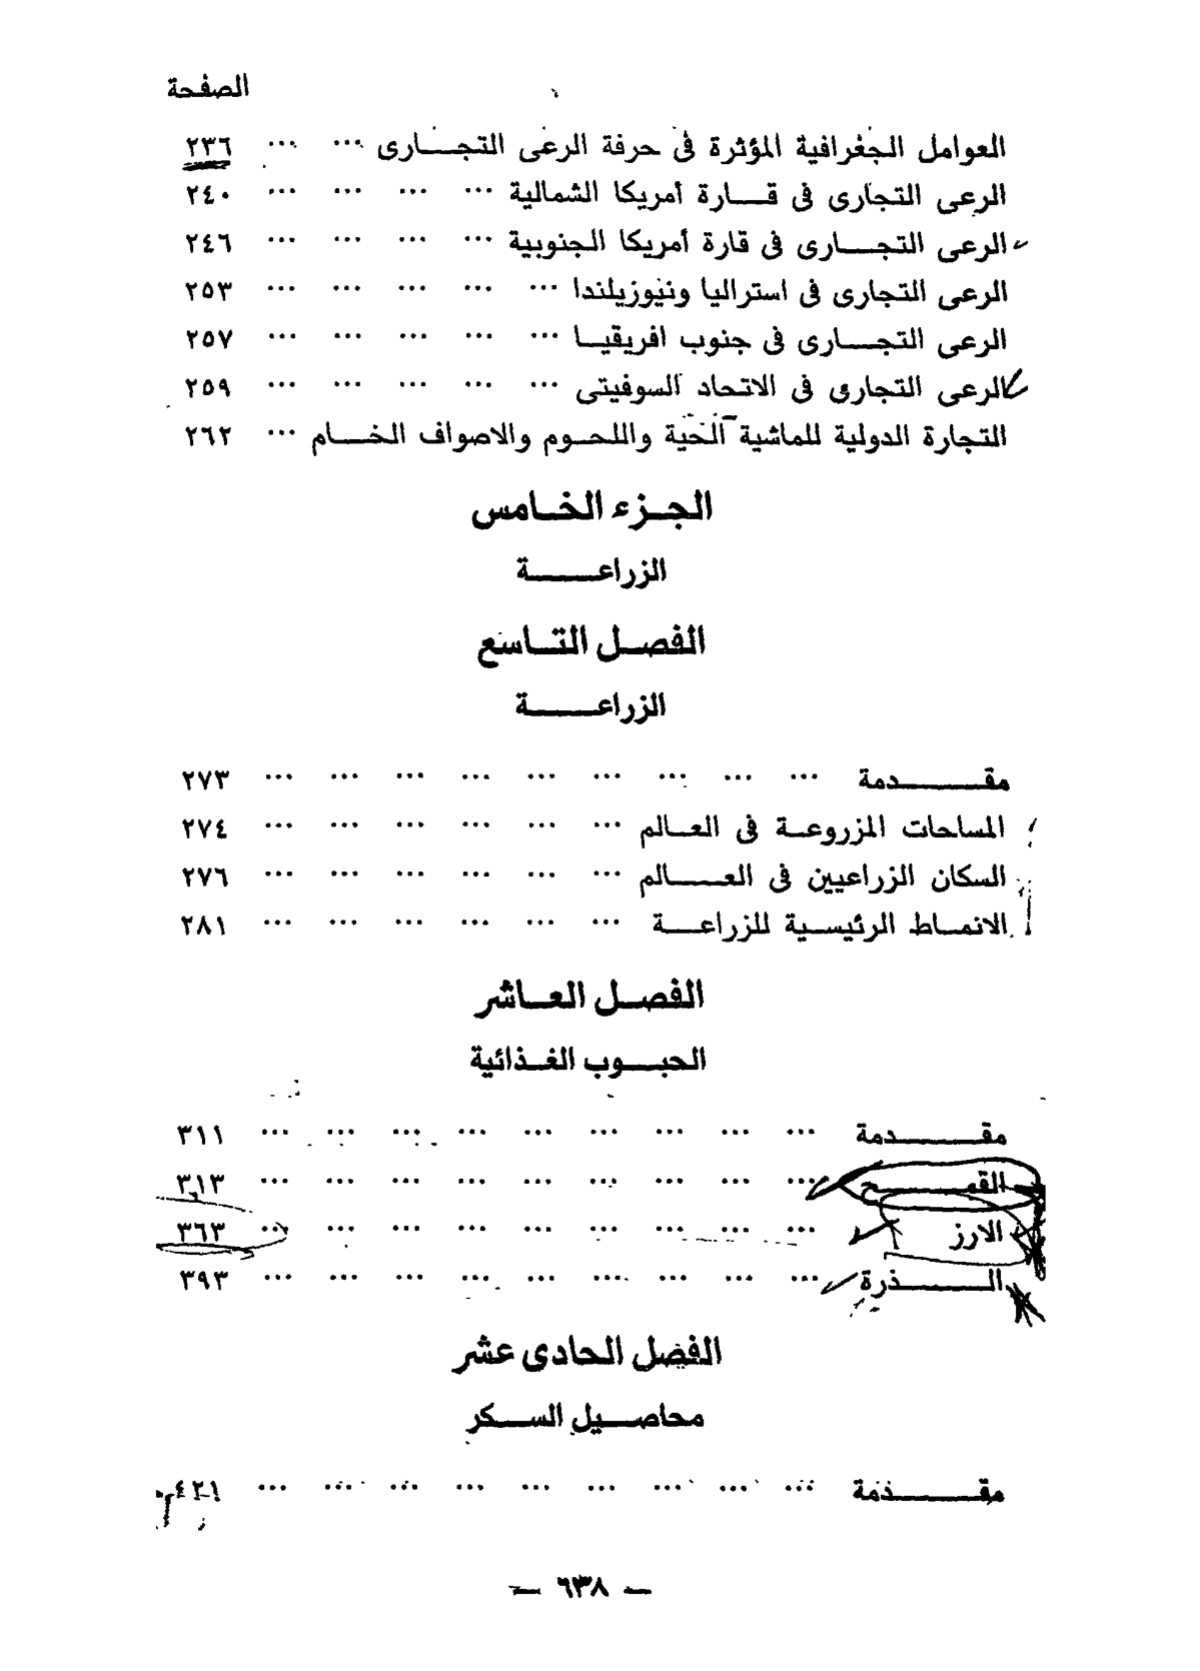 الصفحة
العوامل الجغرافية المؤثرة فى حرفة الرعى التجارى ... ... ٢٣٦
الرعى التجارى فى قارة أمريكا الشمالية ... ... ... ... ٢٤٠
الرعى التجارى فى قارة أمريكا الجنوبية ... ... ... ... ٢٤٦
الرعى التجارى فى استراليا ونيوزيلندا ... ... ... ... ... ٢٥٣
الرعى التجارى فى جنوب افريقيا ... ... ... ... ... ٢٥٧
الرعى التجارى فى الاتحاد السوفيتى ... ... ... ... ... ٢٥٩
التجارة الدولية للماشية الحية واللحوم والاصواف الخام ... ٢٦٢
الجزء الخامس
الزراعة
الفصل التاسع
الزراعة
مقدمة ... ... ... ... ... ... ... ... ... ٢٧٣
المساحات المزروعة فى العالم ... ... ... ... ... ... ٢٧٤
السكان الزراعيين فى العالم ... ... ... ... ... ... ٢٧٦
الانماط الرئيسية للزراعة ... ... ... ... ... ... ٢٨١
الفصل العاشر
الحبوب الغذائية
مقدمة ... ... ... ... ... ... ... ... ... ٣١١
القمح ... ... ... ... ... ... ... ... ... ٣١٣
الارز ... ... ... ... ... ... ... ... ... ٣٦٣
الذرة ... ... ... ... ... ... ... ... ... ٣٩٣
الفصل الحادى عشر
محاصيل السكر
مقدمة ... ... ... ... ... ... ... ... ... ٤٢١
— ٦٣٨ —